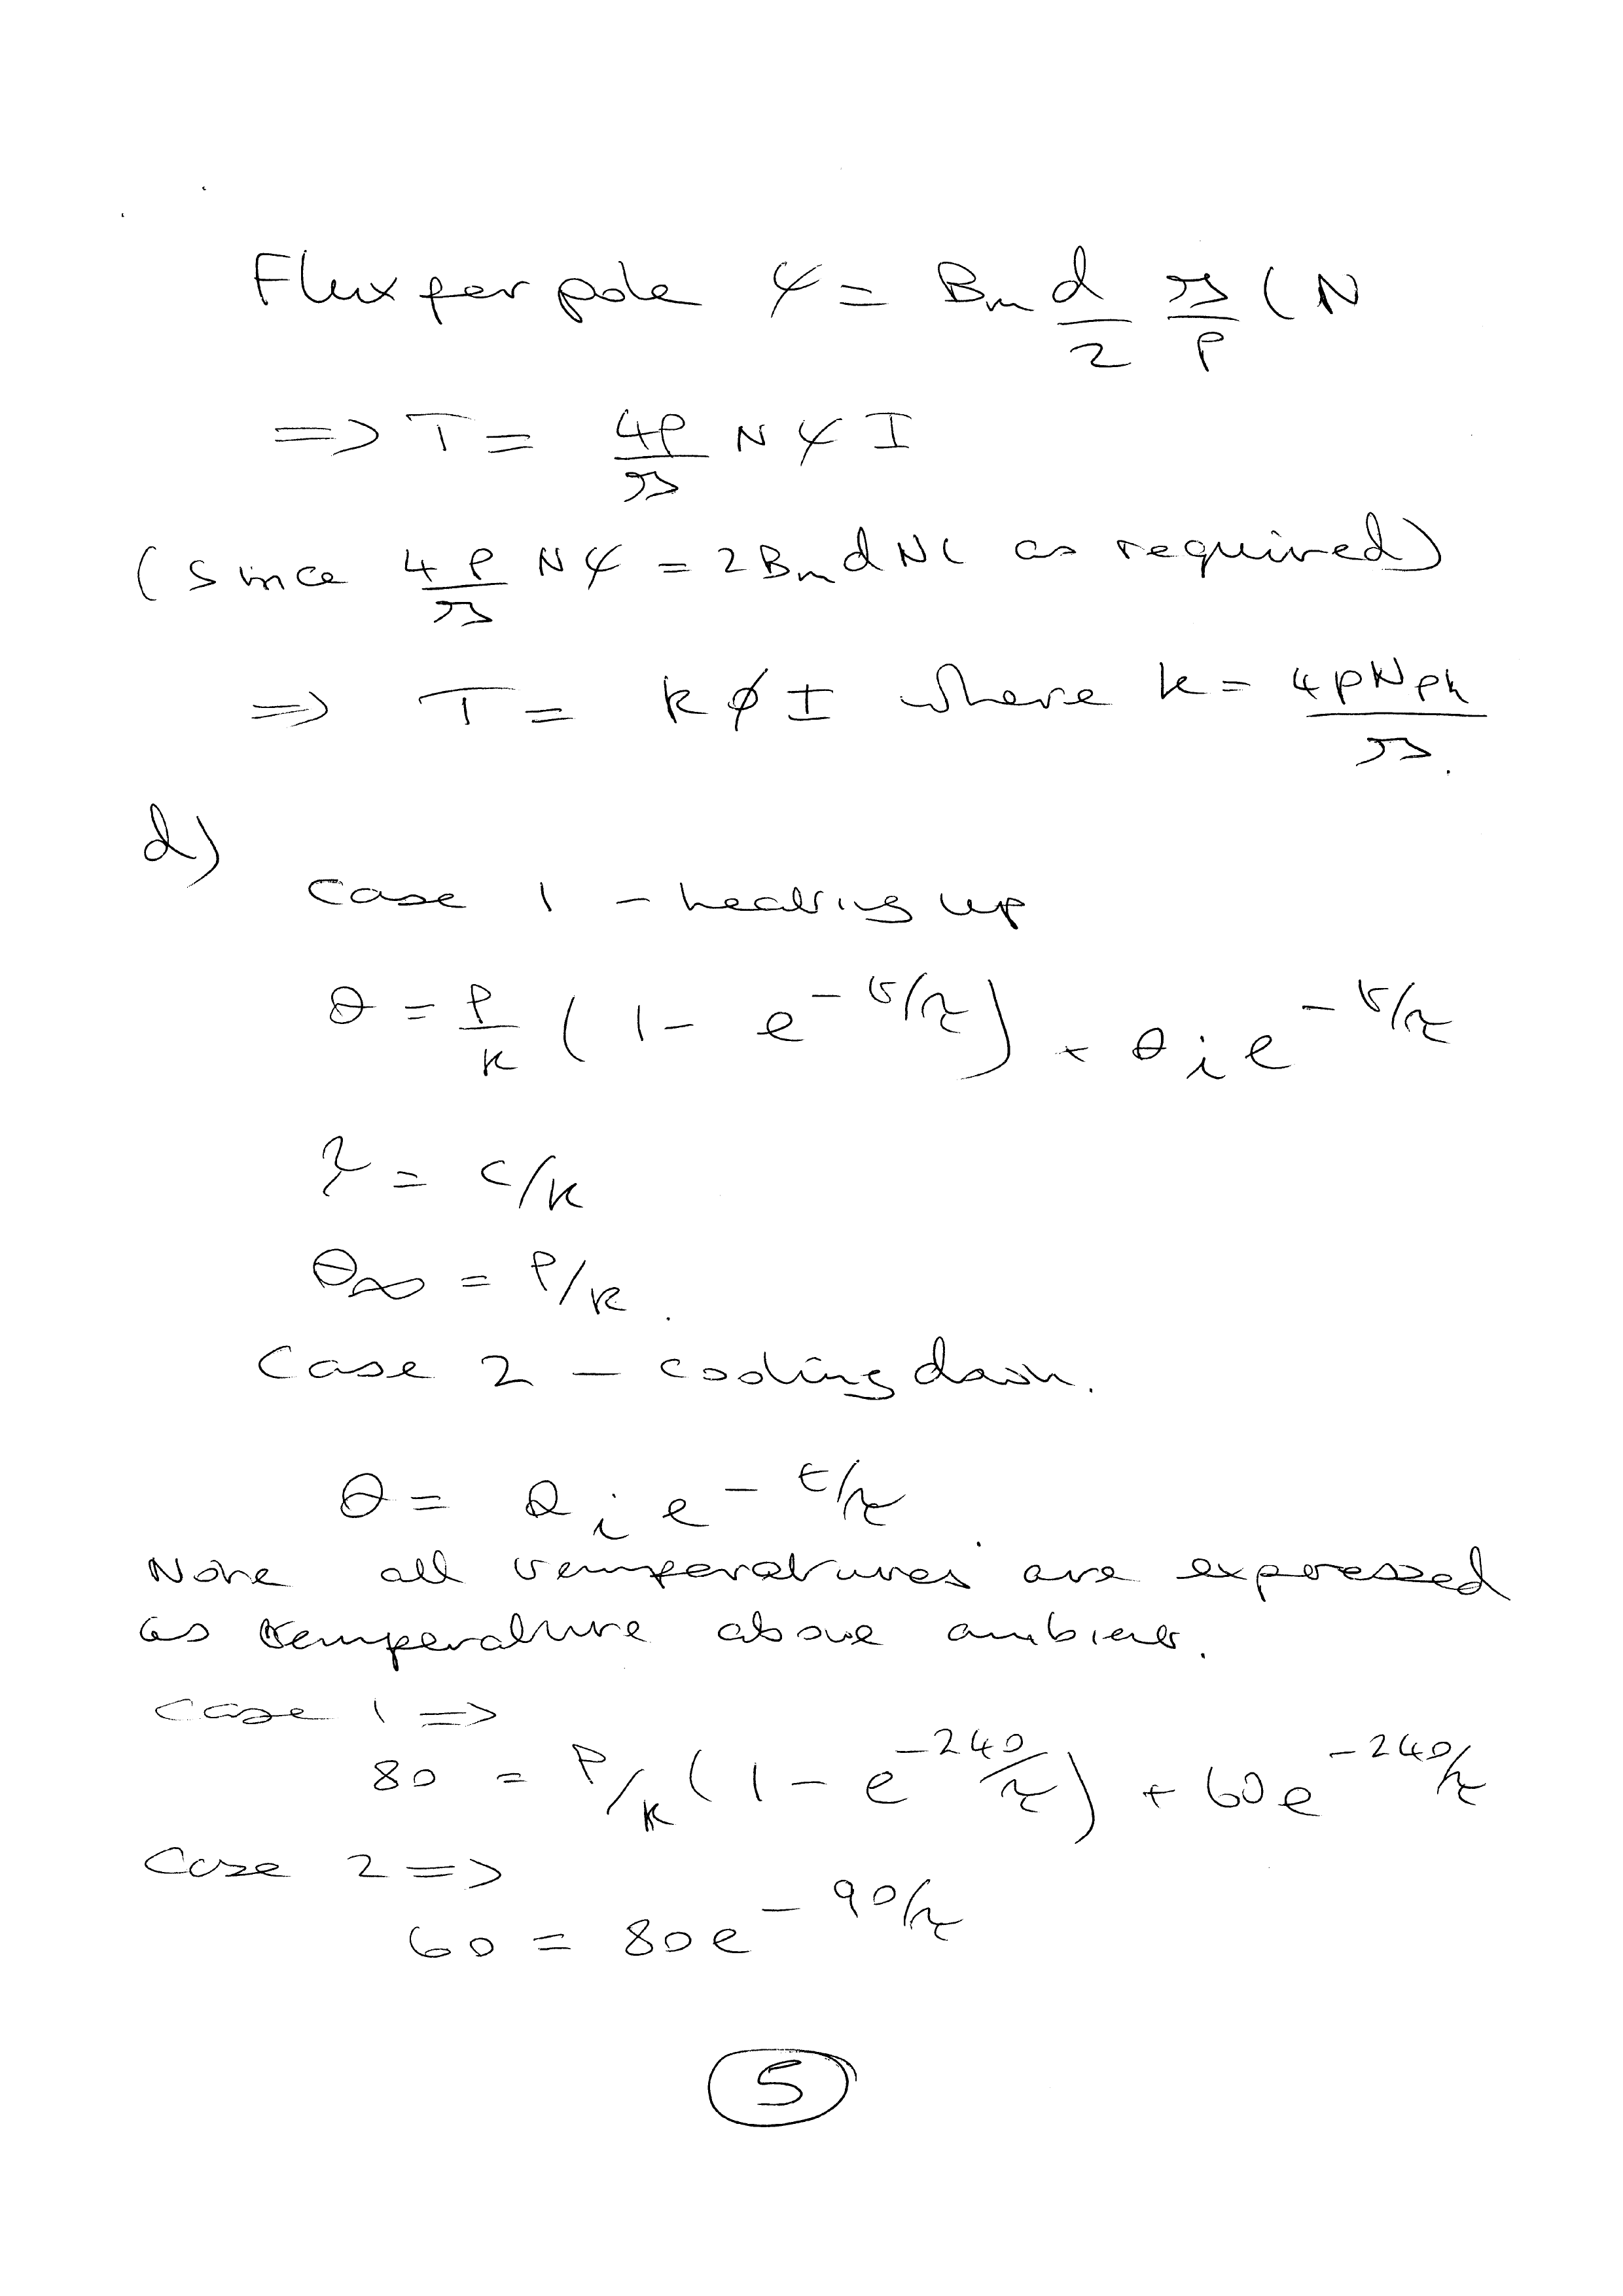 Flux per pole ψ = Bm d/2 π/p l N
=> T = 4p/π N ψ I
(Since 4p/π N ψ = 2 Bm d N l as required)
=> T = k φ I where k = 4pNph/π.
d)
Case 1 - heating up
θ = P/k (1 - e^-t/τ) + θi e^-t/τ
τ = C/k
θ∞ = P/k.
Case 2 - cooling down.
θ = θi e^-t/τ
Note all temperatures are expressed
as temperature above ambient.
Case 1 =>
80 = P/k (1 - e^-240/τ) + 60 e^-240/τ
Case 2 =>
60 = 80 e^-90/τ
5